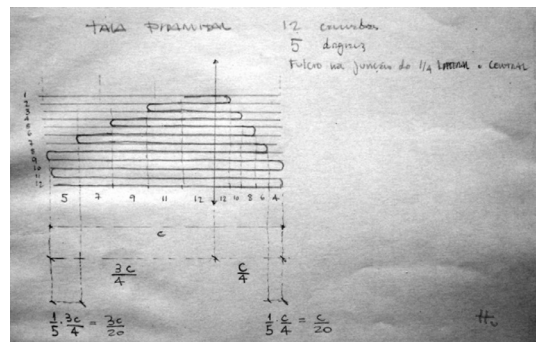 TALA PIRAMIDAL
12 camadas
5 degraus
Fulcro na junção do 1/4 LATERAL e CENTRAL
1
2
3
4
5
6
7
8
9
10
11
12
5 7 9 11 12 12 10 8 6 4
c
3c/4 c/4
1/5 · 3c/4 = 3c/20 1/5 · c/4 = c/20